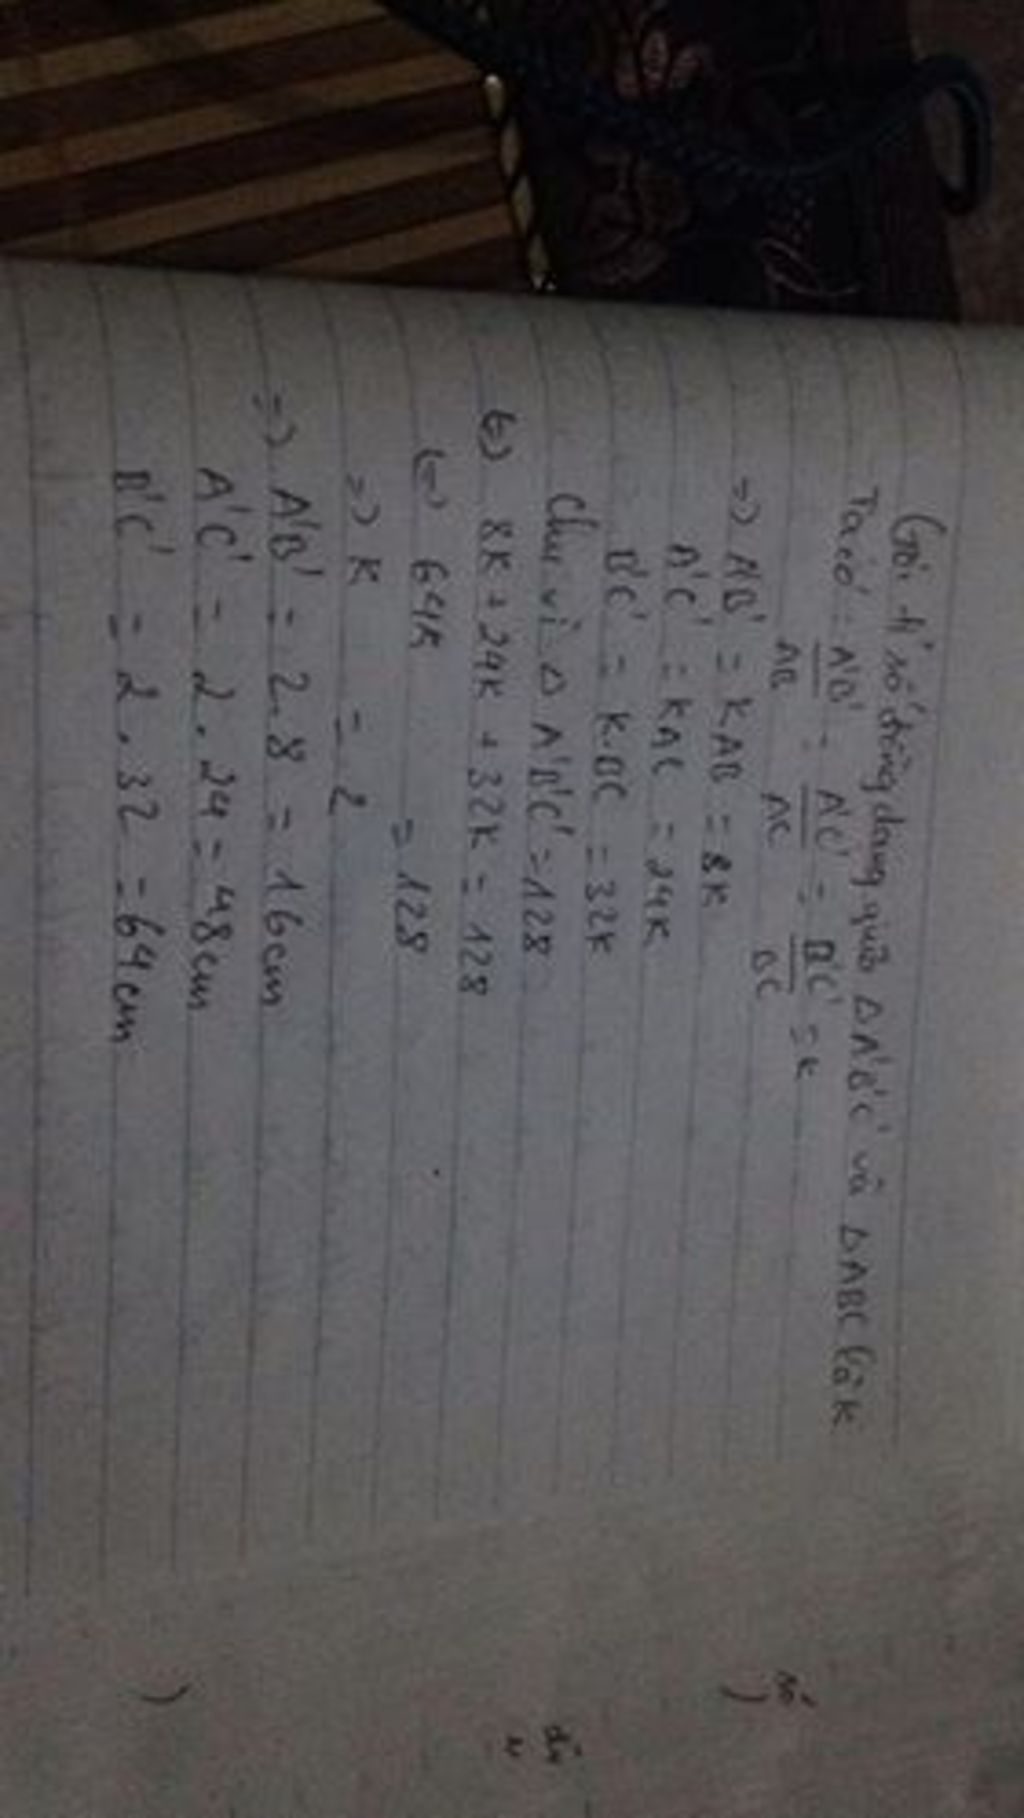 Gọi tỉ số đồng dạng giữa ΔA'B'C' và ΔABC là k
Ta có: A'B'/AB = A'C'/AC = B'C'/BC = k
=> A'B' = kAB = 8k
A'C' = kAC = 24k
B'C' = k.BC = 32k
Chu vi Δ A'B'C' = 128
(=) 8k + 24k + 32k = 128
(=) 64k = 128
=> k = 2
=> A'B' = 2.8 = 16cm
A'C' = 2.24 = 48cm
B'C' = 2.32 = 64cm